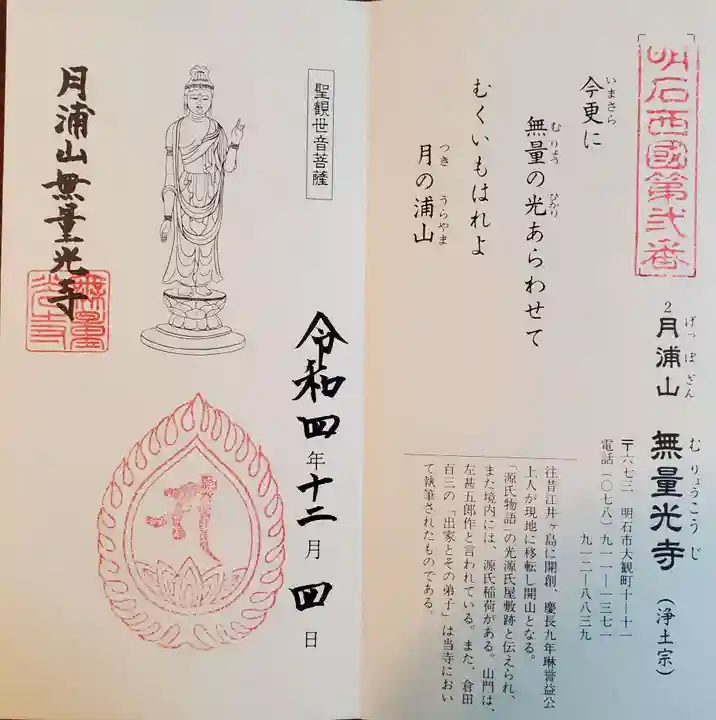 明石西國第弐番
2 月浦山 無量光寺（浄土宗）
げっぽざん むりょうこうじ
〒六七三 明石市大観町十―十一
電話（〇七八）九一一―一三七一
九一二―八八三九
今更に
いまさら
無量の光あらわせて
むりょう ひかり
むくいもはれよ
月の浦山
つき うらやま
往昔江井ヶ島に開創、慶長九年琳誉益公
上人が現地に移転し開山となる。
「源氏物語」の光源氏屋敷跡と伝えられ、
また境内には、源氏稲荷がある。山門は、
左甚五郎作と言われている。また、倉田
百三の「出家とその弟子」は当寺におい
て執筆されたものである。
聖観世音菩薩
令和四年十二月四日
月浦山無量光寺
無量光寺